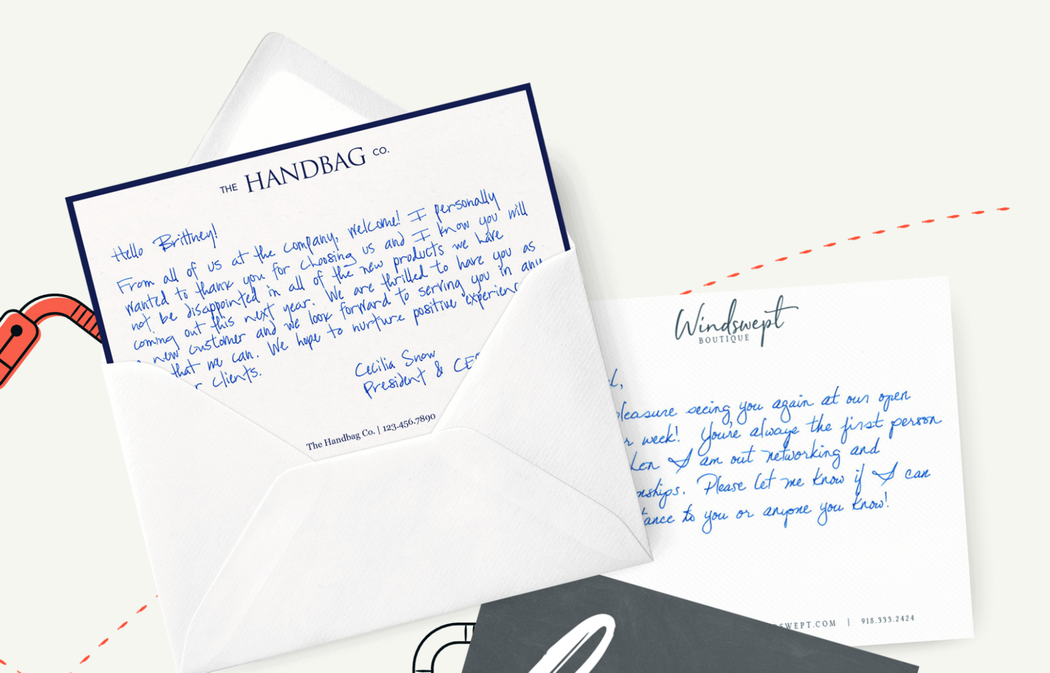 THE HANDBAG CO.
Hello Brittney!
From all of us at the company, welcome! I personally
wanted to thank you for choosing us and I know you will
not be disappointed in all of the new products we have
coming out this next year. We are thrilled to have you as
new customer and we look forward to serving you in any
that we can. We hope to nurture positive
clients.
Cecilia Snow
President &
The Handbag Co. | 123.456.7890
Windswept
BOUTIQUE
pleasure seeing you again at our open
week! You're always the first person
I am out networking and
Please let me know if I can
to you or anyone you know!
918.333.2424